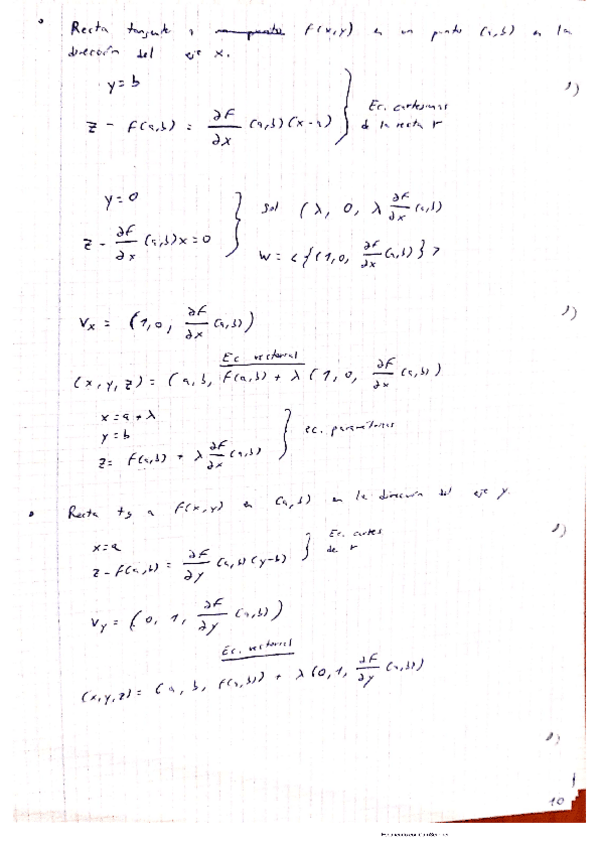 Recta tangente a f(x,y) en un punto (a,b) en la
dirección del eje x.
y=b
z - f(a,b) = ∂f/∂x (a,b)(x-a)
Ec. cartesianas
de la recta r
y=0
z - ∂f/∂x (a,b)x=0
Sol (λ, 0, λ ∂f/∂x (a,b)
W = <{(1,0, ∂f/∂x (a,b)}>
Vx = (1,0, ∂f/∂x (a,b))
Ec. vectorial
(x,y,z) = (a,b, f(a,b) + λ(1,0, ∂f/∂x (a,b))
x=a+λ
y=b
z= f(a,b) + λ ∂f/∂x (a,b)
ec. paramétricas
Recta tg a f(x,y) en (a,b) en la dirección del eje y.
x=a
z-f(a,b) = ∂f/∂y (a,b)(y-b)
Ec. cartes
de r
Vy = (0, 1, ∂f/∂y (a,b))
Ec. vectorial
(x,y,z) = (a, b, f(a,b)) + λ(0,1, ∂f/∂y (a,b))
10